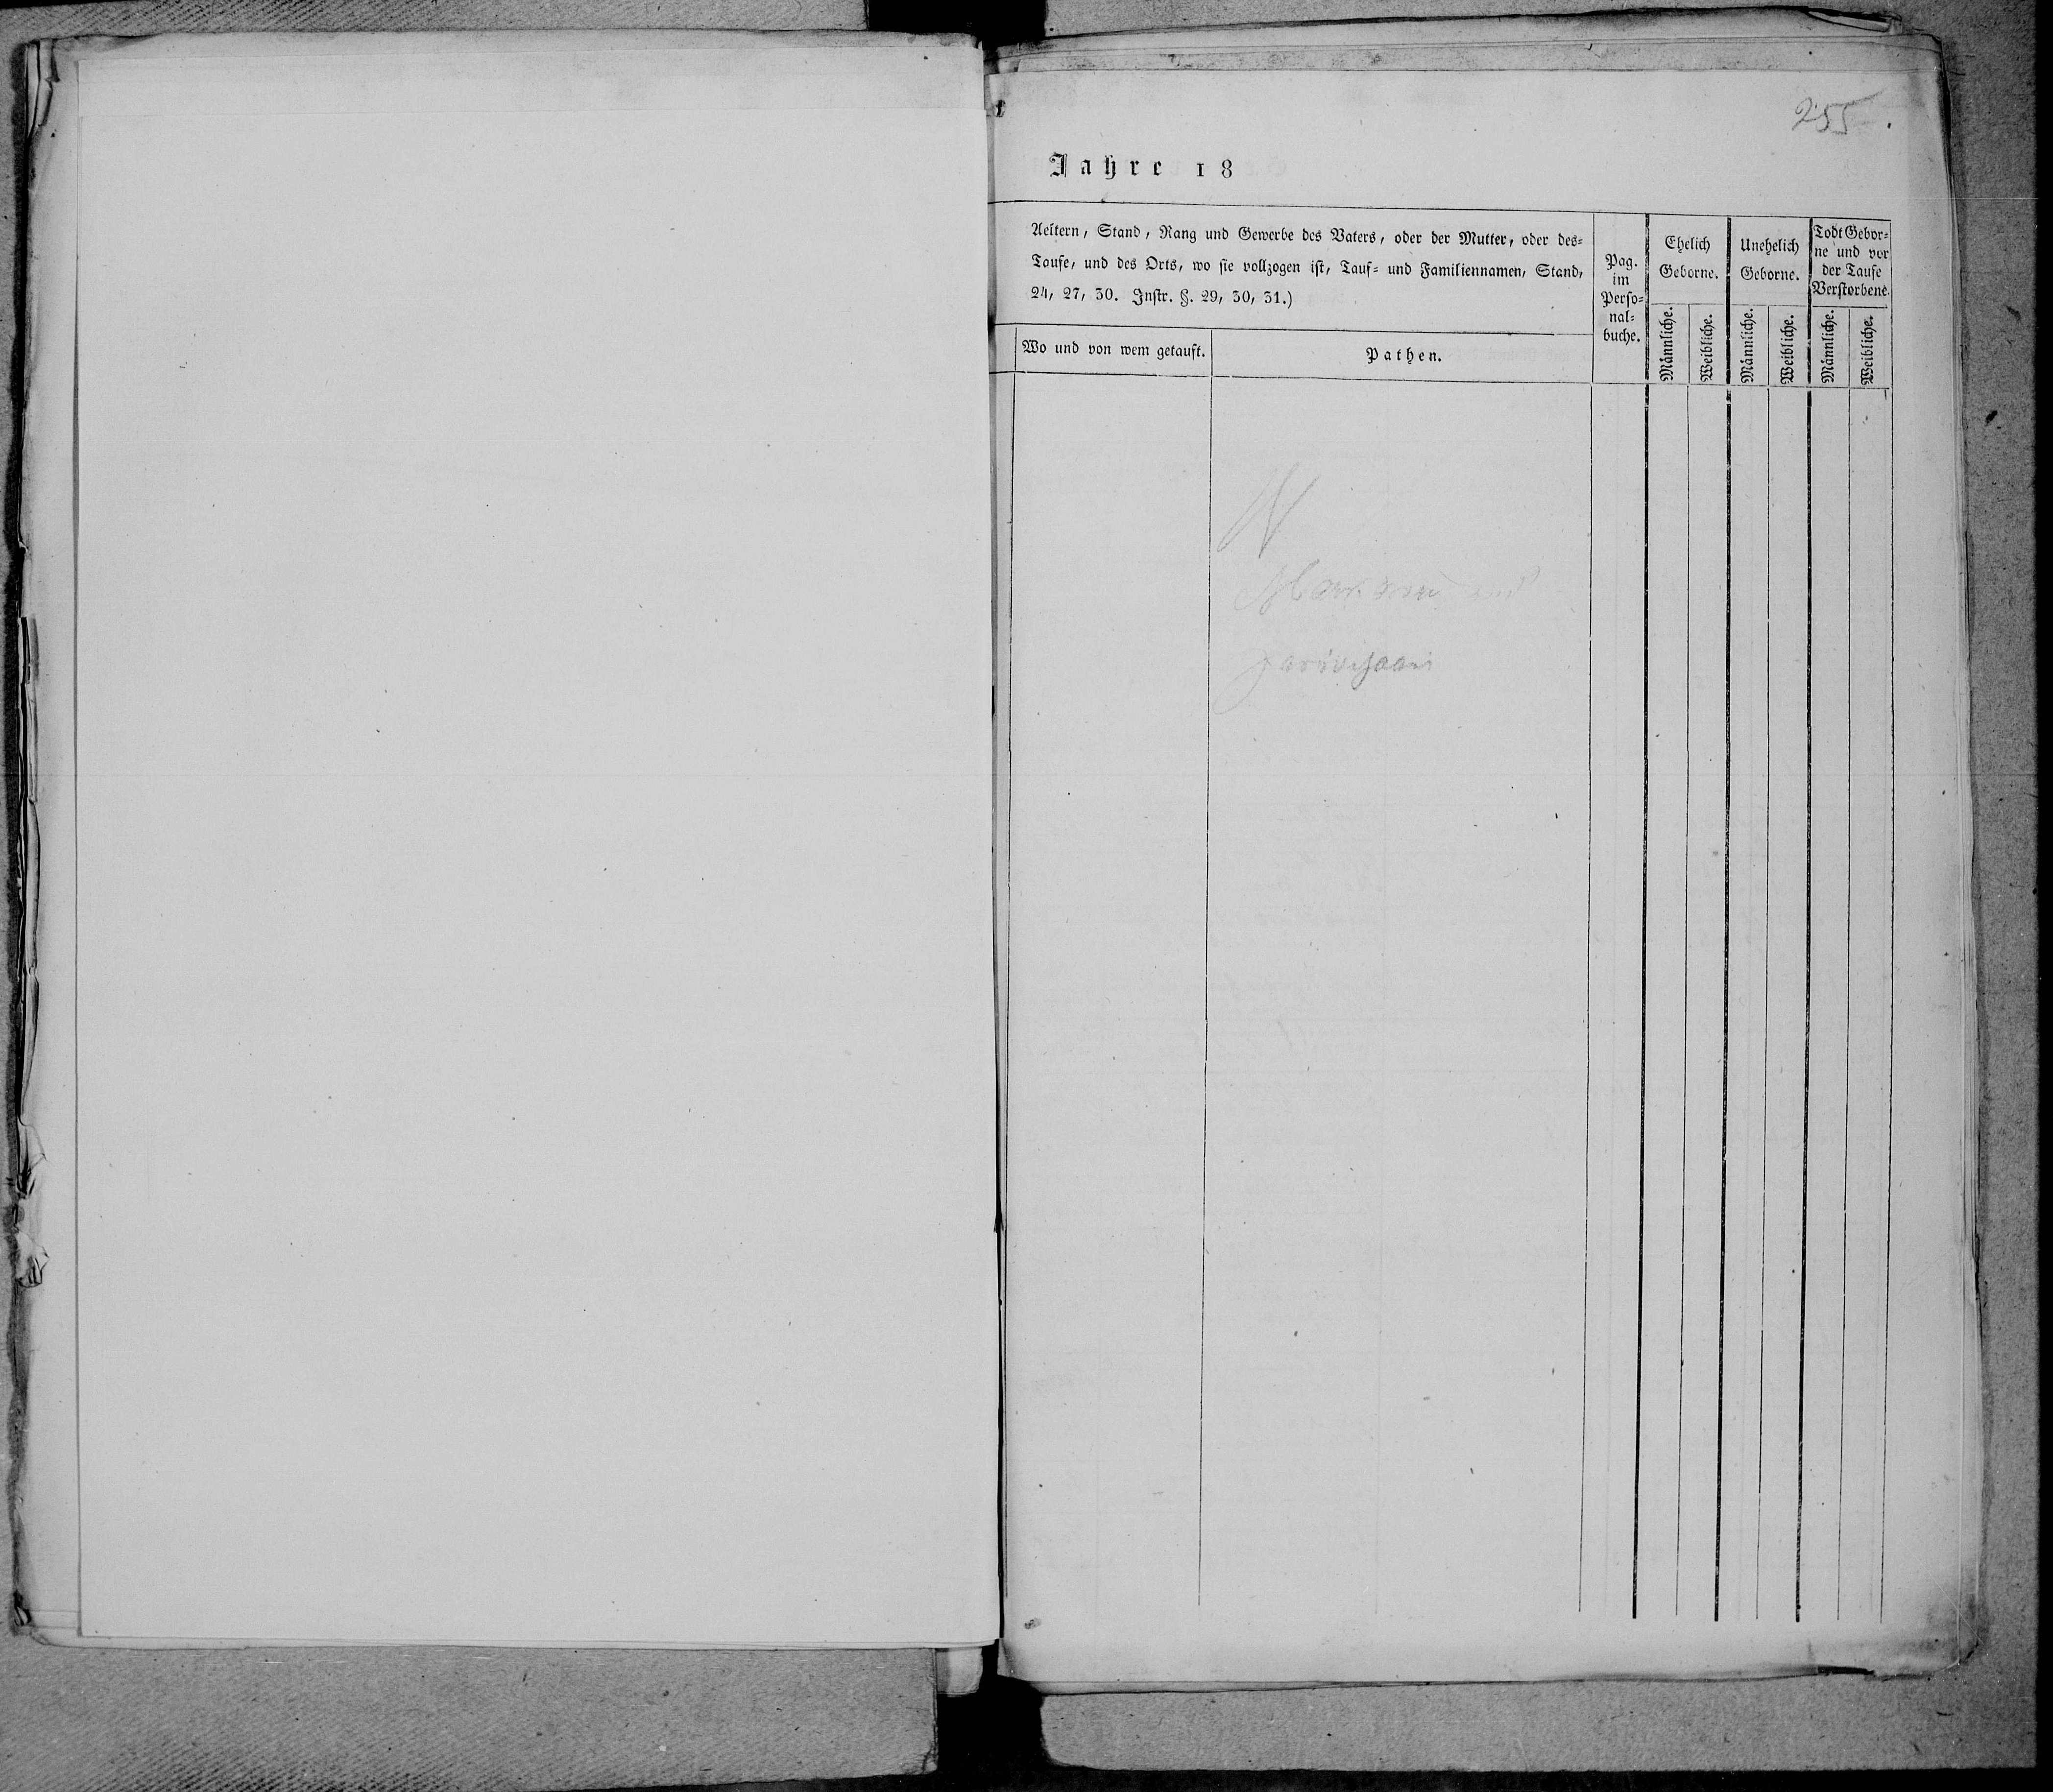 255.
Jahre 18
Aeltern, Stand, Rang und Gewerbe des Vaters, oder der Mutter, oder des=
Taufe, und des Orts, wo sie vollzogen ist, Tauf= und Familiennamen, Stand,
24, 27, 30. Instr. §. 29, 30, 31.)
Wo und von wem getauft.
Pathen.
Pag.
im
Perso=
nal=
buche.
Ehelich
Geborne.
Männliche.
Weibliche.
Unehelich
Geborne.
Männliche.
Weibliche.
Todt Gebor=
ne und vor
der Taufe
Verstorbene.
Männliche.
Weibliche.
N